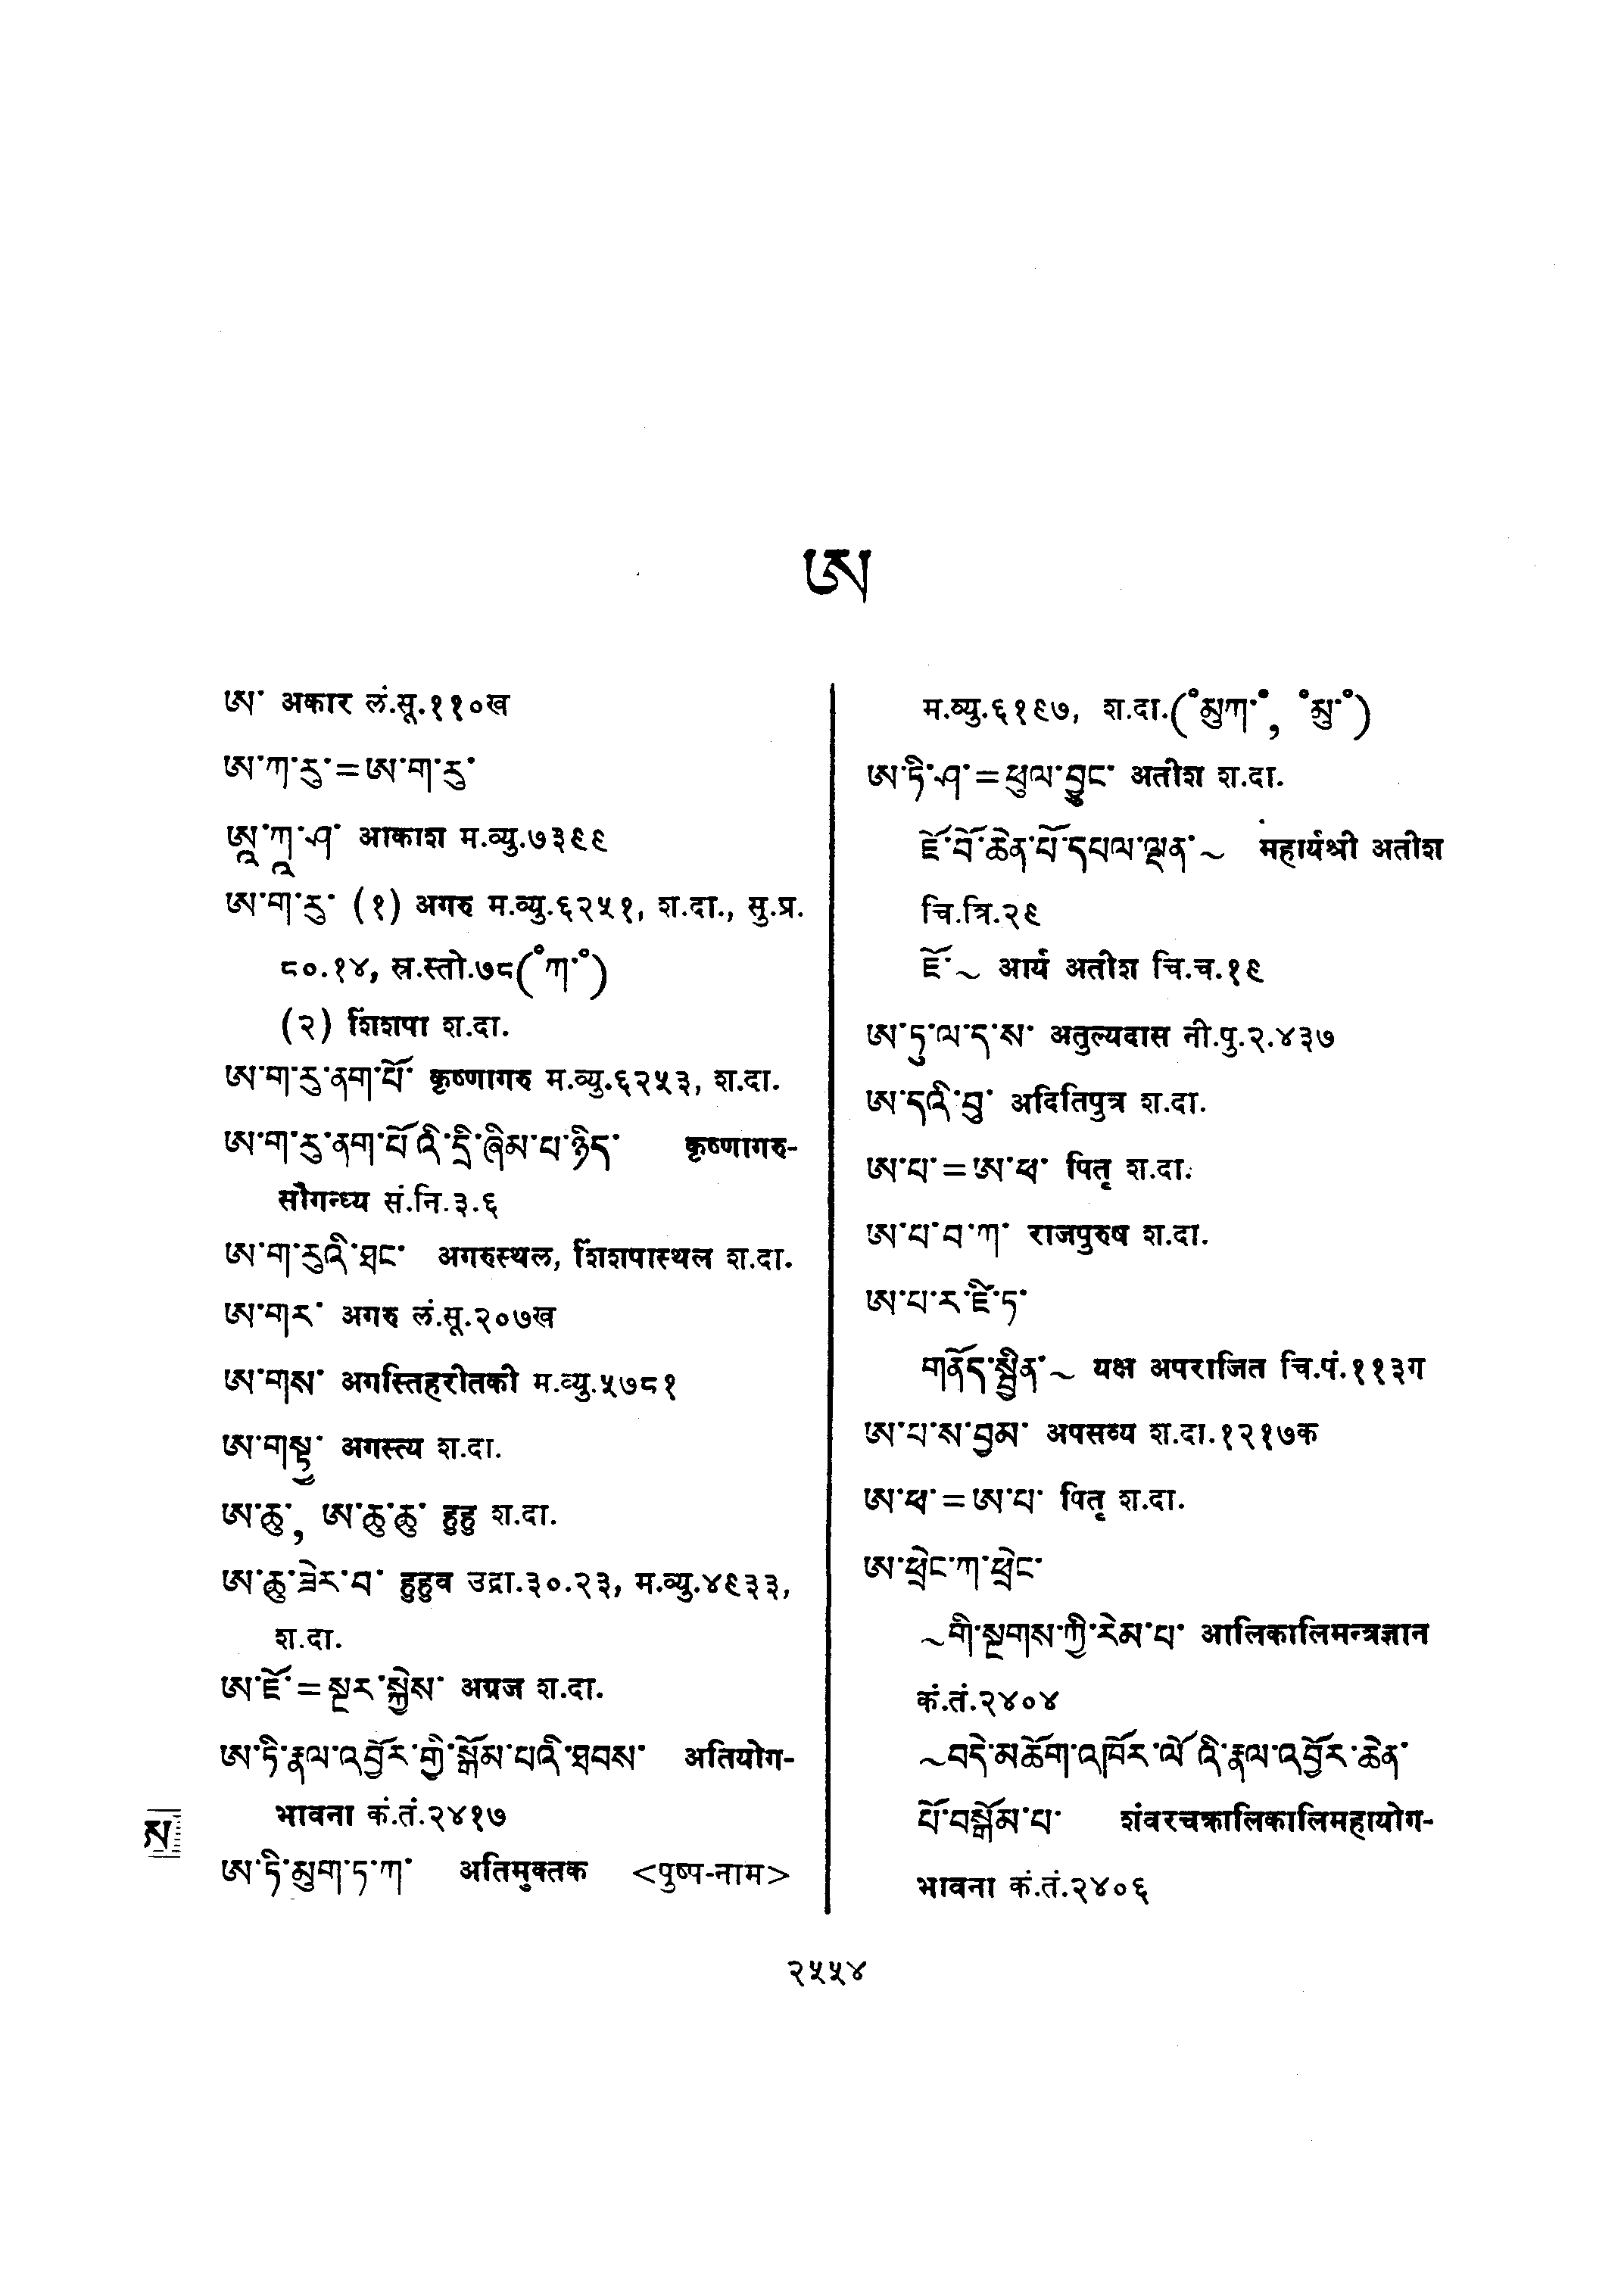 ཨ
ཨ་ अकार लं.सू.११०ख
ཨ་ཀ་རུ་=ཨ་ག་རུ་
ཨཱ་ཀཱ་ཤ་ आकाश म.व्यु.७३९९
ཨ་ག་རུ་ (१) अगरु म.व्यु.६२५१, श.दा., सु.प्र.
८०.१४, स्र.स्तो.७८(°ཀ་°)
(२) शिंशपा श.दा.
ཨ་ག་རུ་ནག་པོ་ कृष्णागरु म.व्यु.६२५३, श.दा.
ཨ་ག་རུ་ནག་པོའི་དྲི་ཞིམ་པ་ཉིད་ कृष्णागरु-
सौगन्ध्य सं.नि.३.६
ཨ་ག་རུའི་ཐང་ अगरुस्थल, शिंशपास्थल श.दा.
ཨ་གར་ अगरु लं.सू.२०७ख
ཨ་གས་ अगस्तिहरीतकी म.व्यु.५७८१
ཨ་གསྟྱ་ अगस्त्य श.दा.
ཨ་ཆུ་, ཨ་ཆུ་ཆུ་ हुहु श.दा.
ཨ་ཆུ་ཟེར་བ་ हुहुव उद्रा.३०.२३, म.व्यु.४९३३,
श.दा.
ཨ་ཇོ་=སྔར་སྐྱེས་ अग्रज श.दा.
ཨ་ཏི་རྣལ་འབྱོར་གྱི་སྒོམ་པའི་ཐབས་ अतियोग-
भावना कं.तं.२४१७
ཨ་ཏི་མུག་ཏ་ཀ་ अतिमुक्तक <पुष्प-नाम>
म.व्यु.६१९७, श.दा.(°མུཀ་°, °མུ་°)
ཨ་ཏི་ཤ་=ཕུལ་བྱུང་ अतीश श.दा.
ཇོ་བོ་ཆེན་པོ་དཔལ་ལྡན་~ महार्यश्री अतीश
चि.त्रि.२९
ཇོ་~ आर्य अतीश चि.च.१९
ཨ་ཏུ་ལ་ད་ས་ अतुल्यदास नी.पु.२.४३७
ཨ་དའི་བུ་ अदितिपुत्र श.दा.
ཨ་པ་=ཨ་ཕ་ पितृ श.दा.
ཨ་པ་བ་ཀ་ राजपुरुष श.दा.
ཨ་པ་ར་ཛི་ཏ་
གནོད་སྦྱིན་~ यक्ष अपराजित चि.पं.११३ग
ཨ་པ་ས་བྱམ་ अपसव्य श.दा.१२१७क
ཨ་ཕ་=ཨ་པ་ पितृ श.दा.
ཨ་ཕྲེང་ཀ་ཕྲེང་
~གི་སྔགས་ཀྱི་རེམ་པ་ आलिकालिमन्त्रज्ञान
कं.तं.२४०४
~བདེ་མཆོག་འཁོར་ལོའི་རྣལ་འབྱོར་ཆེན་
པོ་བསྒོམ་པ་ शंवरचक्रालिकालिमहायोग-
भावना कं.तं.२४०६
२५५४